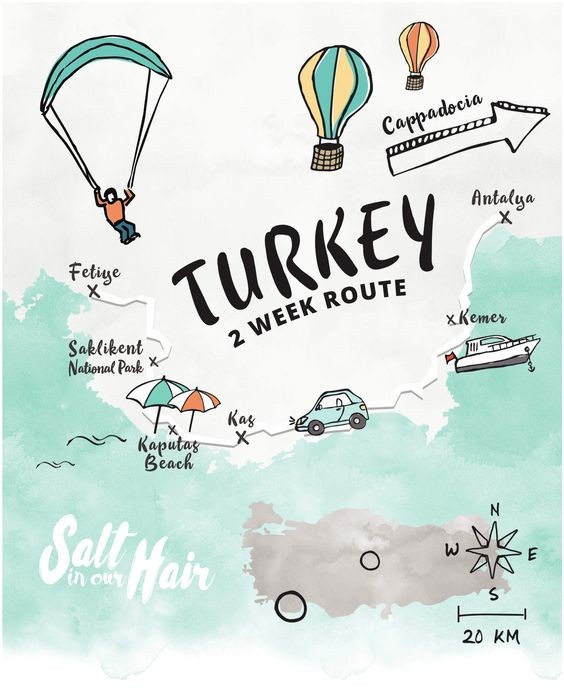 Cappadocia
Antalya
TURKEY
2 WEEK ROUTE
Fetiye
Kemer
Saklikent
National Park
Kaş
Kaputaş
Beach
Salt
in our Hair
N
W E
S
20 KM